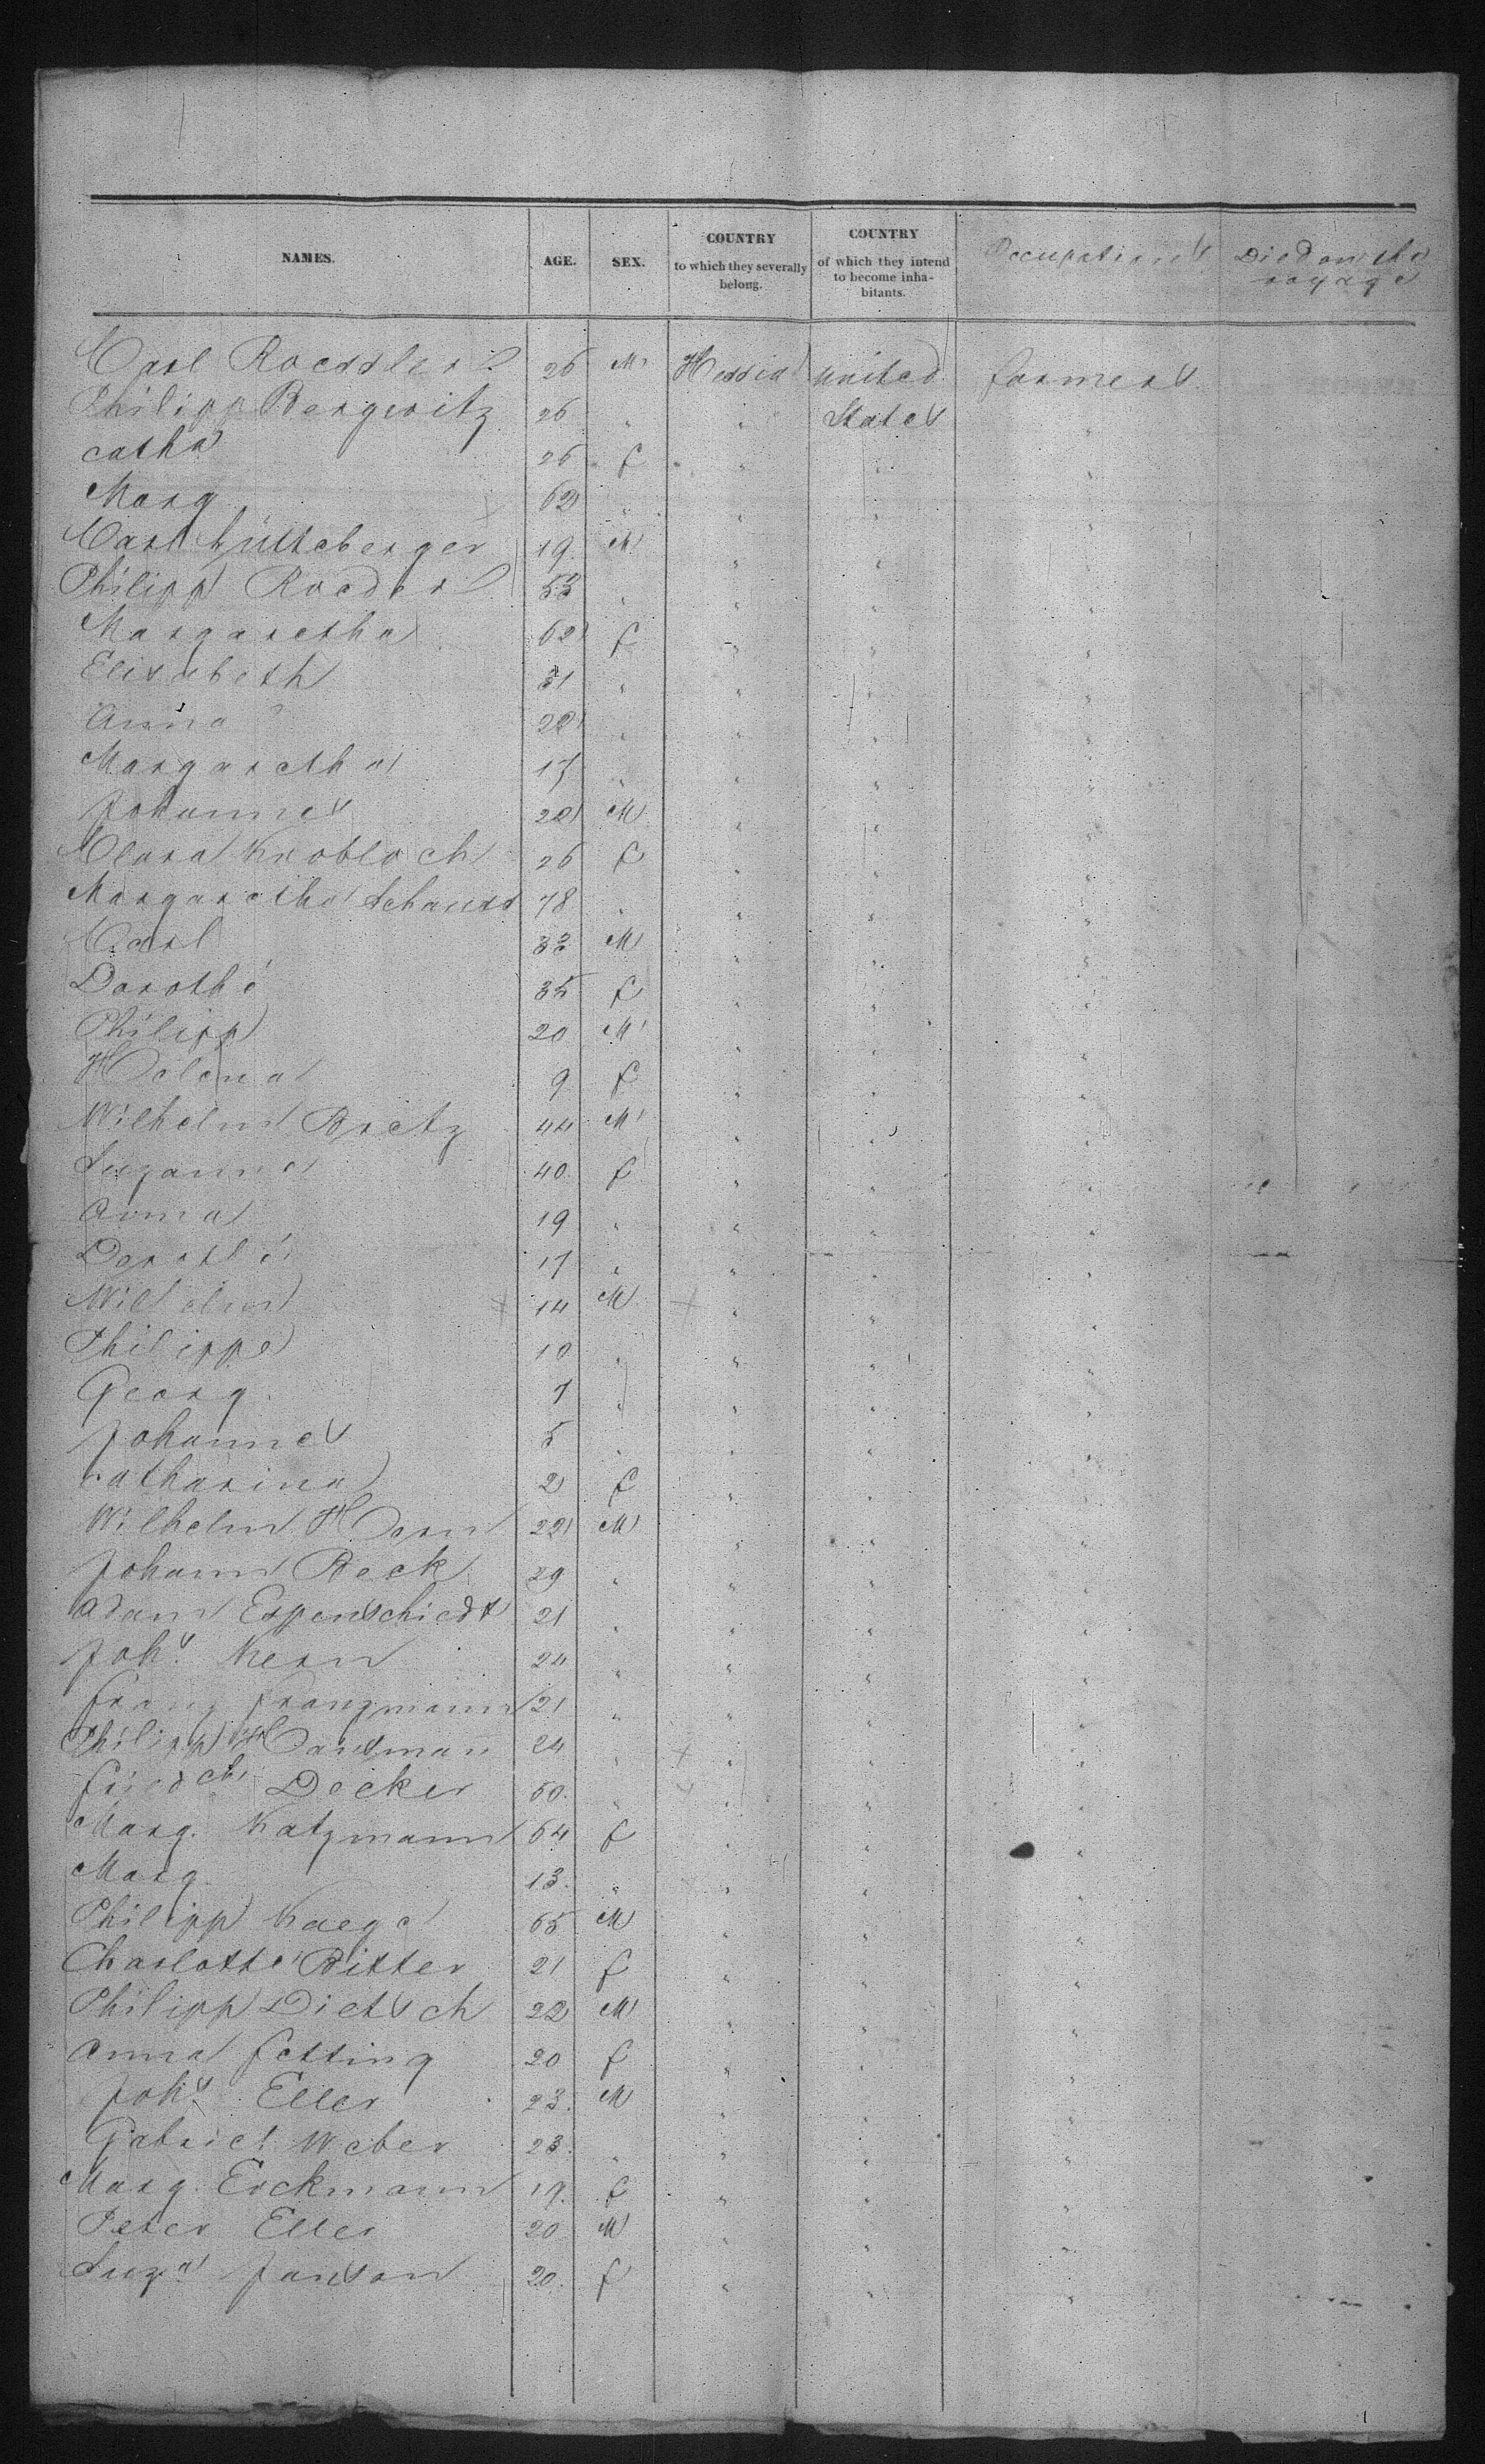 NAMES. AGE. SEX. COUNTRY to which they severally belong. COUNTRY of which they intend to become inhabitants. Occupations Died on the voyage
Carl Roessler 26 M Hessia United farmers
Philipp Bergwitz 26 " " States "
catha 26 f " " "
Marg 62 " " " "
Carl Lütteberger 19 M " " "
Philipp Roeder 53 " " " "
Margaretha 62 f " " "
Elisabeth 31 " " " "
Anna 22 " " " "
Margaretha 17 " " " "
Johannes 22 M " " "
Clara Knobloch 26 f " " "
Margaretha Schauss 78 " " " "
Carl 33 M " " "
Dorothé 35 f " " "
Philipp 20 M " " "
Helena 9 f " " "
Wilhelm Bretz 44 M " " "
Suzanne 40 f " " "
Anna 19 " " " "
Dorothé 17 " " " "
Wilhelm 14 M " " "
Philippe 10 " " " "
Georg 7 " " " "
Johannes 5 " " " "
catharina 2 f " " "
Wilhelm Horn 22 M " " "
Johann Beck 29 " " " "
Adam Espenschiedt 21 " " " "
Johs. Kern 24 " " " "
Franz Franzmann 21 " " " "
Philipp Hansman 24 " " " "
Friedch Decker 50 " " " "
Marg. Katzmann 64 f " " "
Marg. 13 " " " "
Philipp Kaege 65 M " " "
Charlotte Bitter 21 f " " "
Philipp Dietsch 22 M " " "
Anna Fetting 20 f " " "
Johs Eller 23 M " " "
Gabriel Weber 23 " " " "
Marg. Erckmann 19 f " " "
Peter Eller 20 M " " "
Suza Janson 20 f " " "